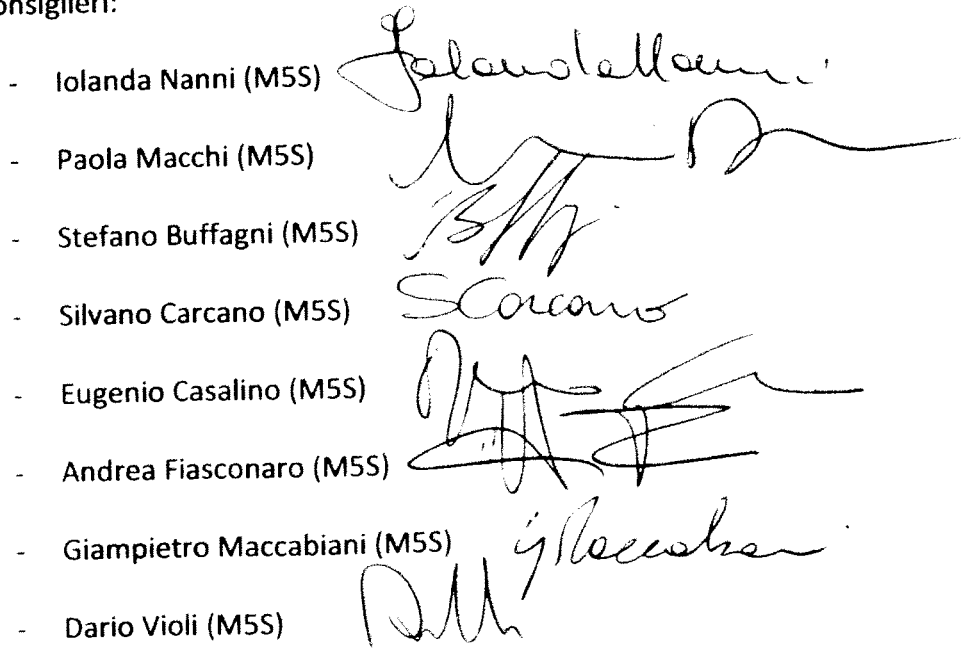 onsiglieri:
- Iolanda Nanni (M5S) Iolanda Nanni
- Paola Macchi (M5S)
- Stefano Buffagni (M5S)
- Silvano Carcano (M5S) SCarcano
- Eugenio Casalino (M5S)
- Andrea Fiasconaro (M5S)
- Giampietro Maccabiani (M5S) GMaccabiani
- Dario Violi (M5S)